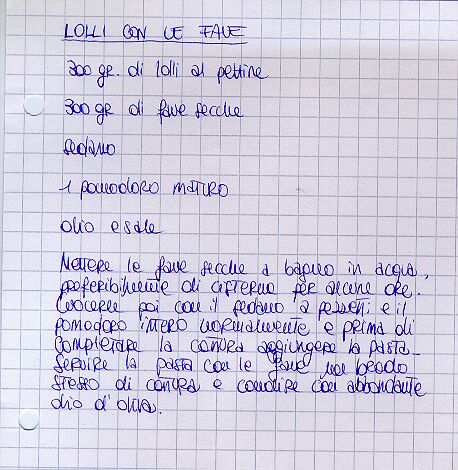 LOLLI CON LE FAVE
300 gr. di lolli al pettine
300 gr di fave secche
sedano
1 pomodoro maturo
olio e sale
Mettere le fave secche a bagno in acqua,
preferibilmente di cisterna per alcune ore.
Cuocerle poi con il sedano a pezzetti e il
pomodoro intero normalmente e prima di
completare la cottura aggiungere la pasta.
Servire la pasta con le fave nel brodo
stesso di cottura e condire con abbondante
olio d'oliva.